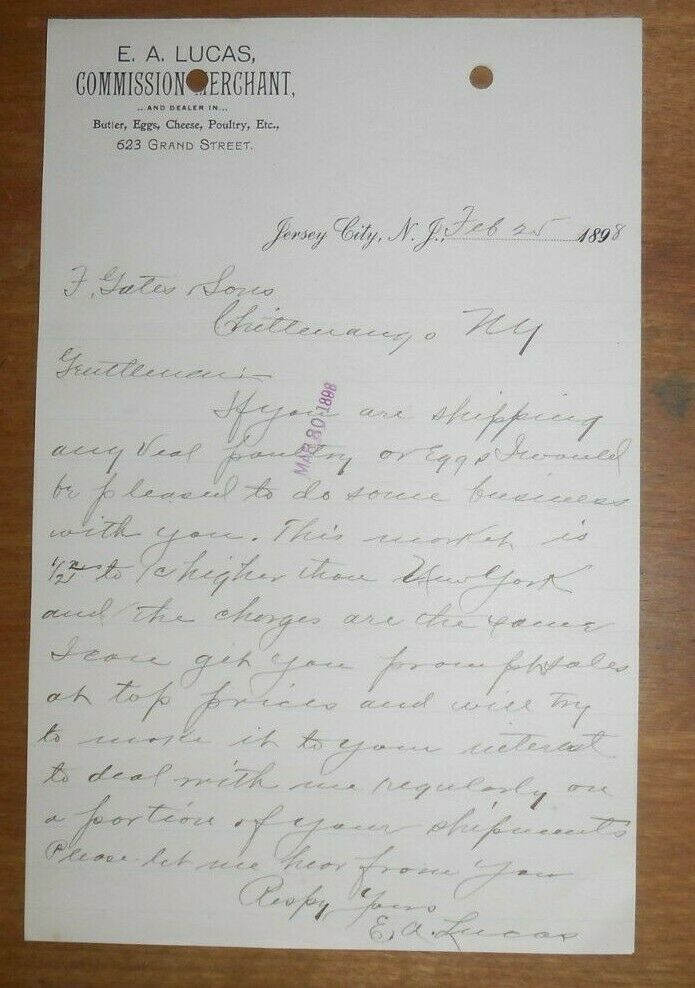 E. A. LUCAS,
COMMISSION MERCHANT,
...AND DEALER IN...
Butter, Eggs, Cheese, Poultry, Etc.,
623 GRAND STREET.
Jersey City, N. J., Feb 25 1898
F. Gates Sons
Chittenango NY
Gentlemen:
If you are shipping
any Veal poultry or Eggs I would
be pleased to do some business
with you. This market is
1/2 to 1c higher than New York
and the charges are the same
I can get you prompt sales
at top prices and will try
to make it to your interest
to deal with me regularly on
a portion of your shipments
Please let me hear from you
Respy Yours
E. A. Lucas
MAR 30 1898